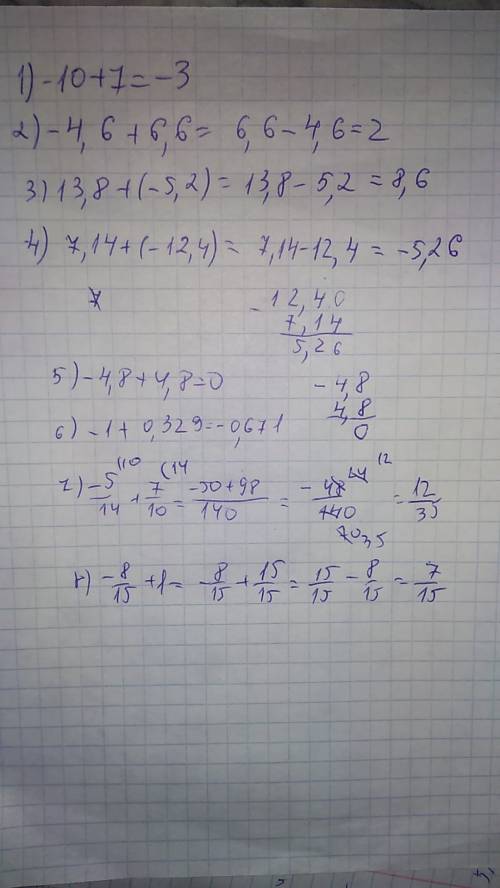 1) -10+7=-3
2) -4,6+6,6= 6,6-4,6=2
3) 13,8+(-5,2)=13,8-5,2=8,6
4) 7,14+(-12,4)= 7,14-12,4=-5,26
7
-12,40
7,14
5,26
5) -4,8+4,8=0
-4,8
4,8
0
6) -1+0,329=-0,671
7) -5/14 (10 + 7/10 (14 = -50+98/140 = -48/140 24 12 70 35 = 12/35
8) -8/15+1= -8/15+15/15=15/15-8/15=7/15